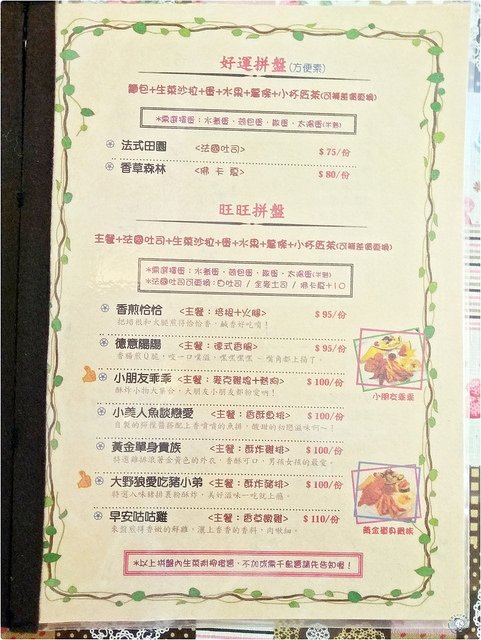 好運拼盤(方便素)
麵包+生菜沙拉+蛋+水果+薯條+小杯奶茶(可補差價更換)
*需選擇蛋：水煮蛋、荷包蛋、歐蛋、太陽蛋(半熟)
法式田園 <法國吐司> $75/份
香草森林 <佛卡夏> $80/份
旺旺拼盤
主餐+法國吐司+生菜沙拉+蛋+水果+薯條+小杯奶茶(可補差價更換)
*需選擇蛋：水煮蛋、荷包蛋、歐蛋、太陽蛋(半熟)
*法國吐司可更換：白吐司 / 全麥土司 / 佛卡夏+10
香煎恰恰 <主餐：培根+火腿> $95/份
把培根和火腿煎得恰恰香，鹹香好吃唷！
德意腸腸 <主餐：德式香腸> $95/份
香腸煎Q脆，咬一口噗滋，嘿嘿嘿黑～嘴角都上揚了。
小朋友乖乖 <主餐：麥克雞塊+熱狗> $100/份
酥炸小物大集合，大朋友小朋友都粉愛喲！
小朋友乖乖
小美人魚談戀愛 <主餐：香酥魚排> $100/份
自製的酸辣醬搭配上香噴噴的魚排，酸甜的初戀滋味啊～！
黃金單身貴族 <主餐：酥炸雞排> $100/份
特選雞排滾著金黃色的外衣，香酥可口，男孩女孩的最愛。
大野狼愛吃豬小弟 <主餐：酥炸豬排> $100/份
特選入味豬排裹粉酥炸，美好滋味一吃就上癮。
黃金單身貴族
早安咕咕雞 <主餐：香草嫩雞> $110/份
來盤煎得香嫩的鮮雞，灑上香香的香料，肉嫩細。
*以上拼盤內生菜附柳橙醬，不加或需千島醬請先告知喔！